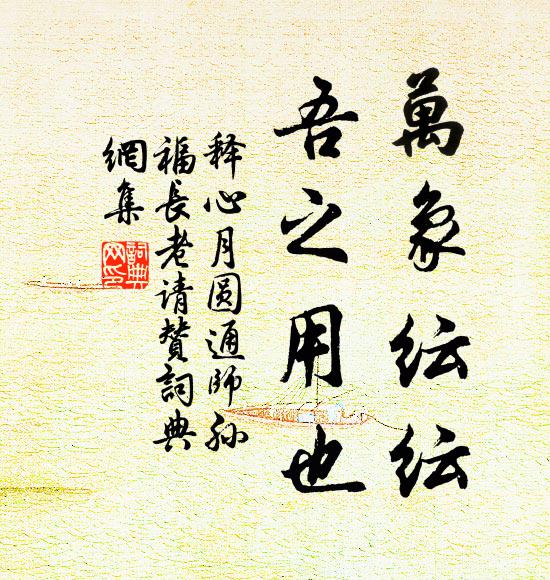 萬象纭纭
吾之用也
释心月圆通师孙
福長老请赞詞典
網集
詞典
网印